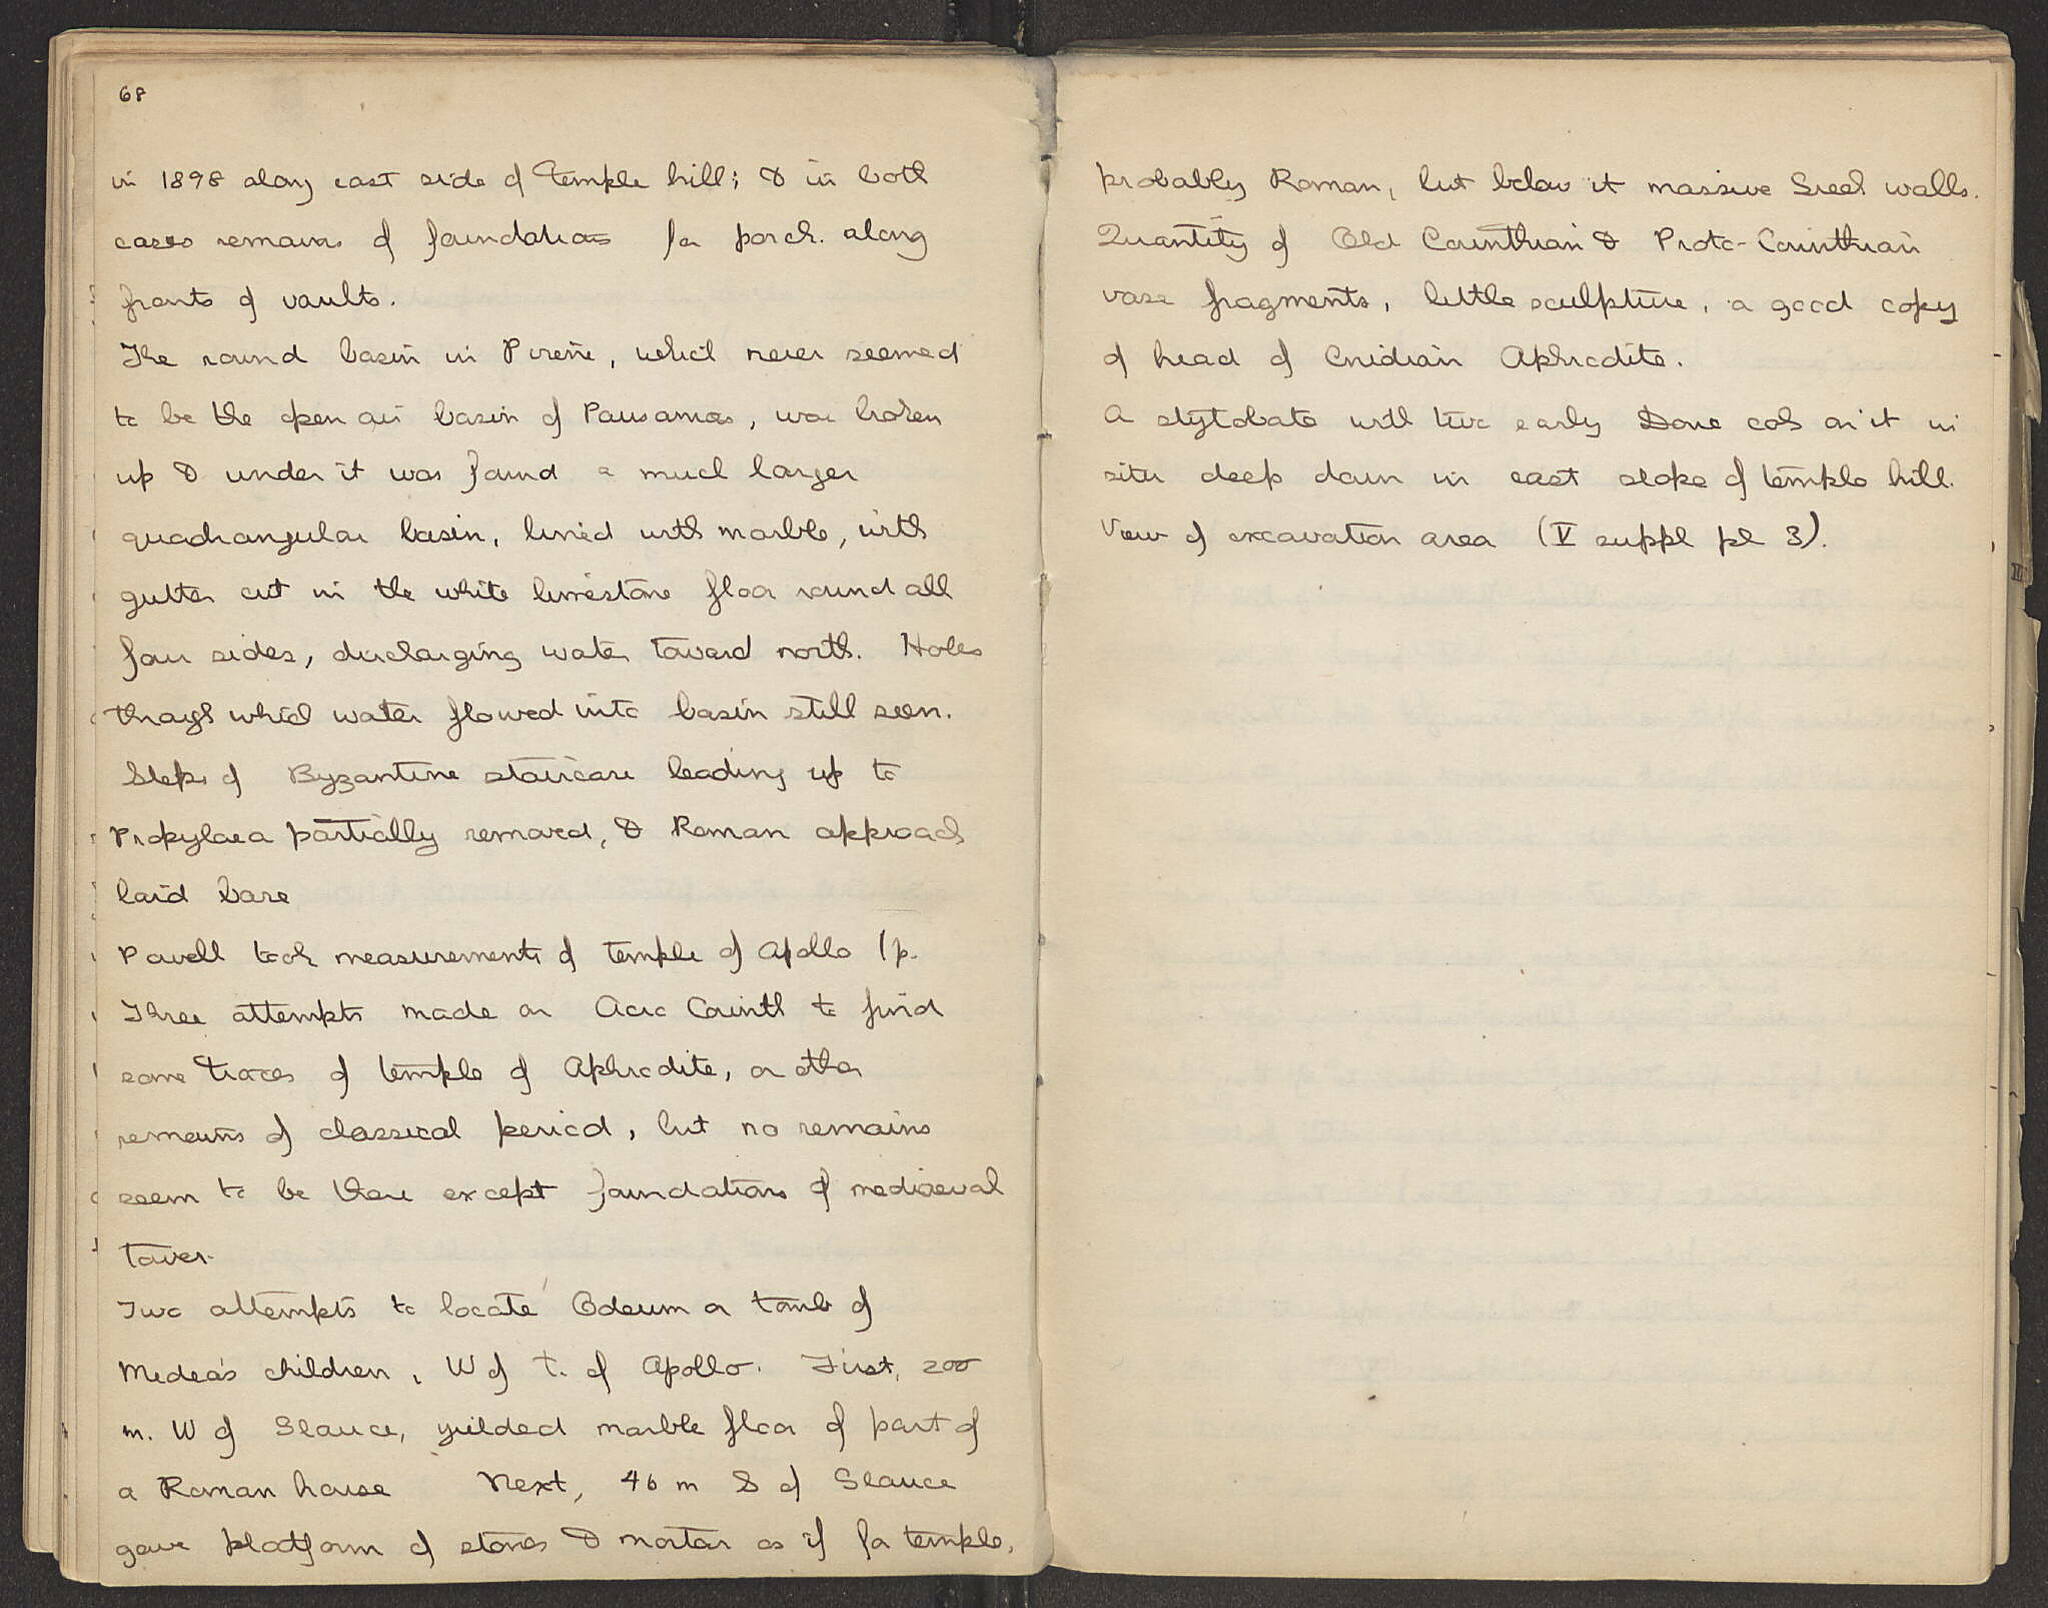 68
in 1898 along east side of temple hill; & in both
cases remains of foundations for porch along
fronts of vaults.
The round basin in Pirene, which never seemed
to be the open air basin of Pausanias, was broken
up & under it was found a much larger
quadrangular basin, lined with marble, with
gutter cut in the white limestone floor round all
four sides, discharging water toward north. Holes
through which water flowed into basin still seen.
Steps of Byzantine staircase leading up to
Propylaea partially removed, & Roman approach
laid bare
Powell took measurements of temple of Apollo (p.
Three attempts made on Acro Corinth to find
some traces of temple of Aphrodite, or other
remains of classical period, but no remains
seem to be there except foundations of mediaeval
tower.
Two attempts to locate Odeum or tomb of
Medea's children, W of t. of Apollo. First, 200
m. W of Glauce, yielded marble floor of part of
a Roman house Next, 46 m S of Glauce
gave platform of stones & mortar as if for temple,
probably Roman, but below it massive Greek walls.
Quantity of Old Corinthian & Proto-Corinthian
vase fragments, little sculpture, a good copy
of head of Cnidian Aphrodite.
A stylobate with two early Doric cols on it in
situ deep down in east slope of temple hill.
View of excavation area (V suppl pl 3).